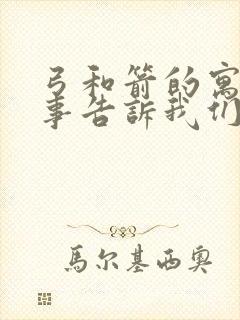 弓和箭的寓
事告訴我们
馬尔基西奥